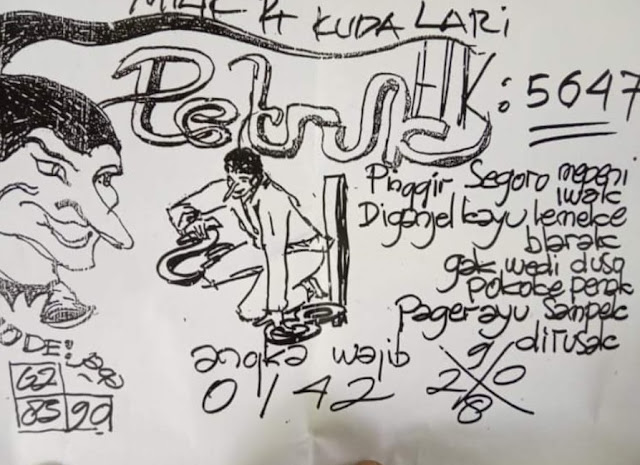 KUDA LARI
Petruk
HK: 5647
Pinggir Segoro mepeni
iwak
Diganjel kayu lemekce
blarak
gak wedi duso
Pokoke penak
Pagerayu Sampek
dirusak
ODE:
62
85 90
angka wajib
0/42
9
2 0
8